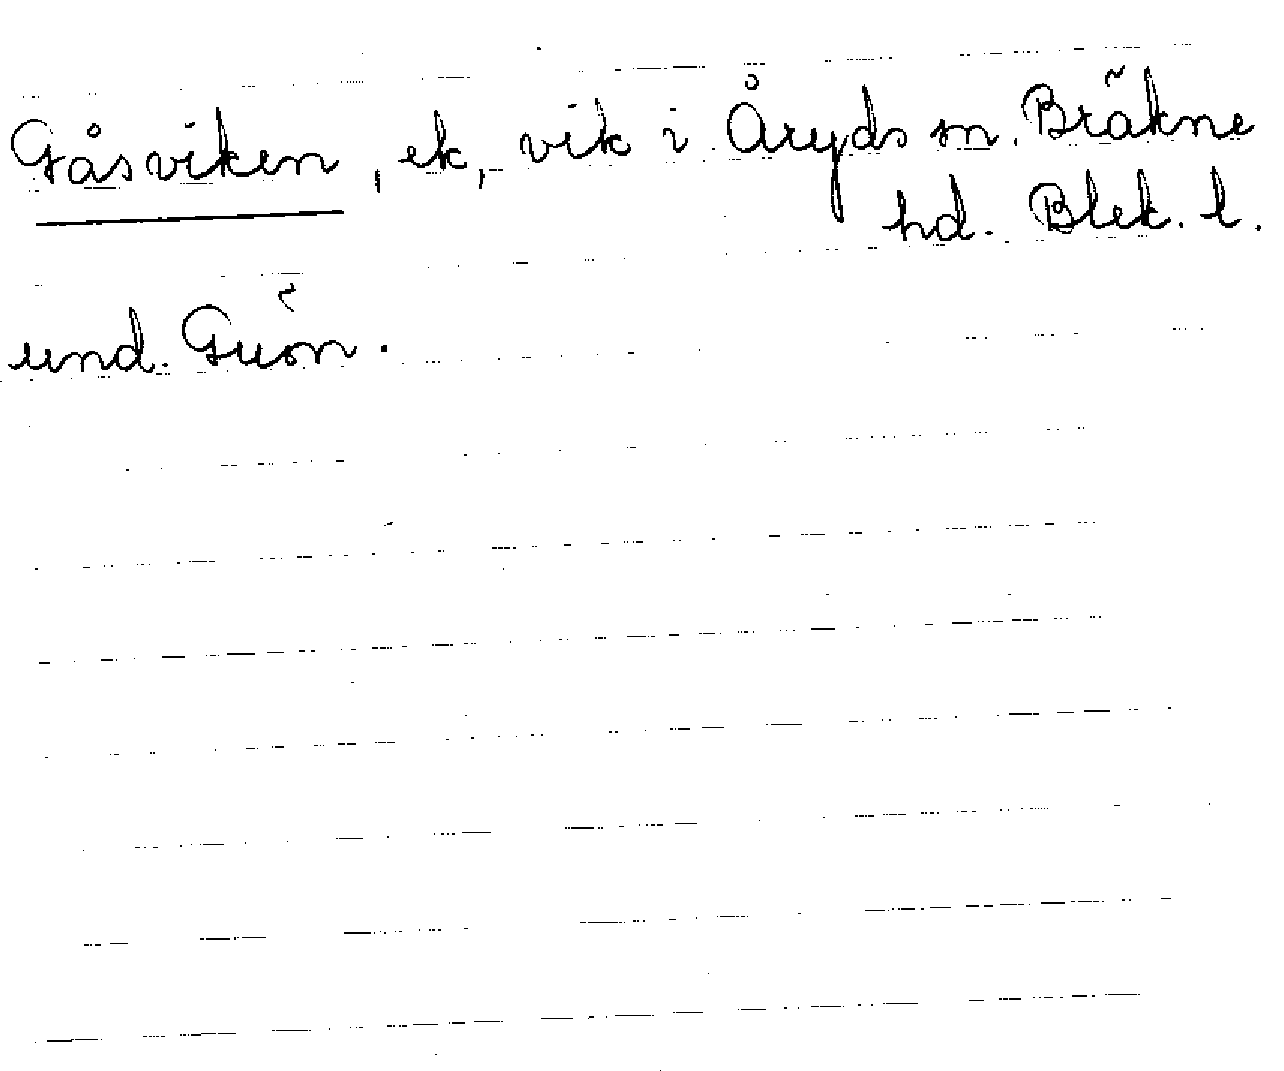 Gåsviken, ek, vik i Åryds sn. Bräkne
hd. Blek. l.
und. Guön.